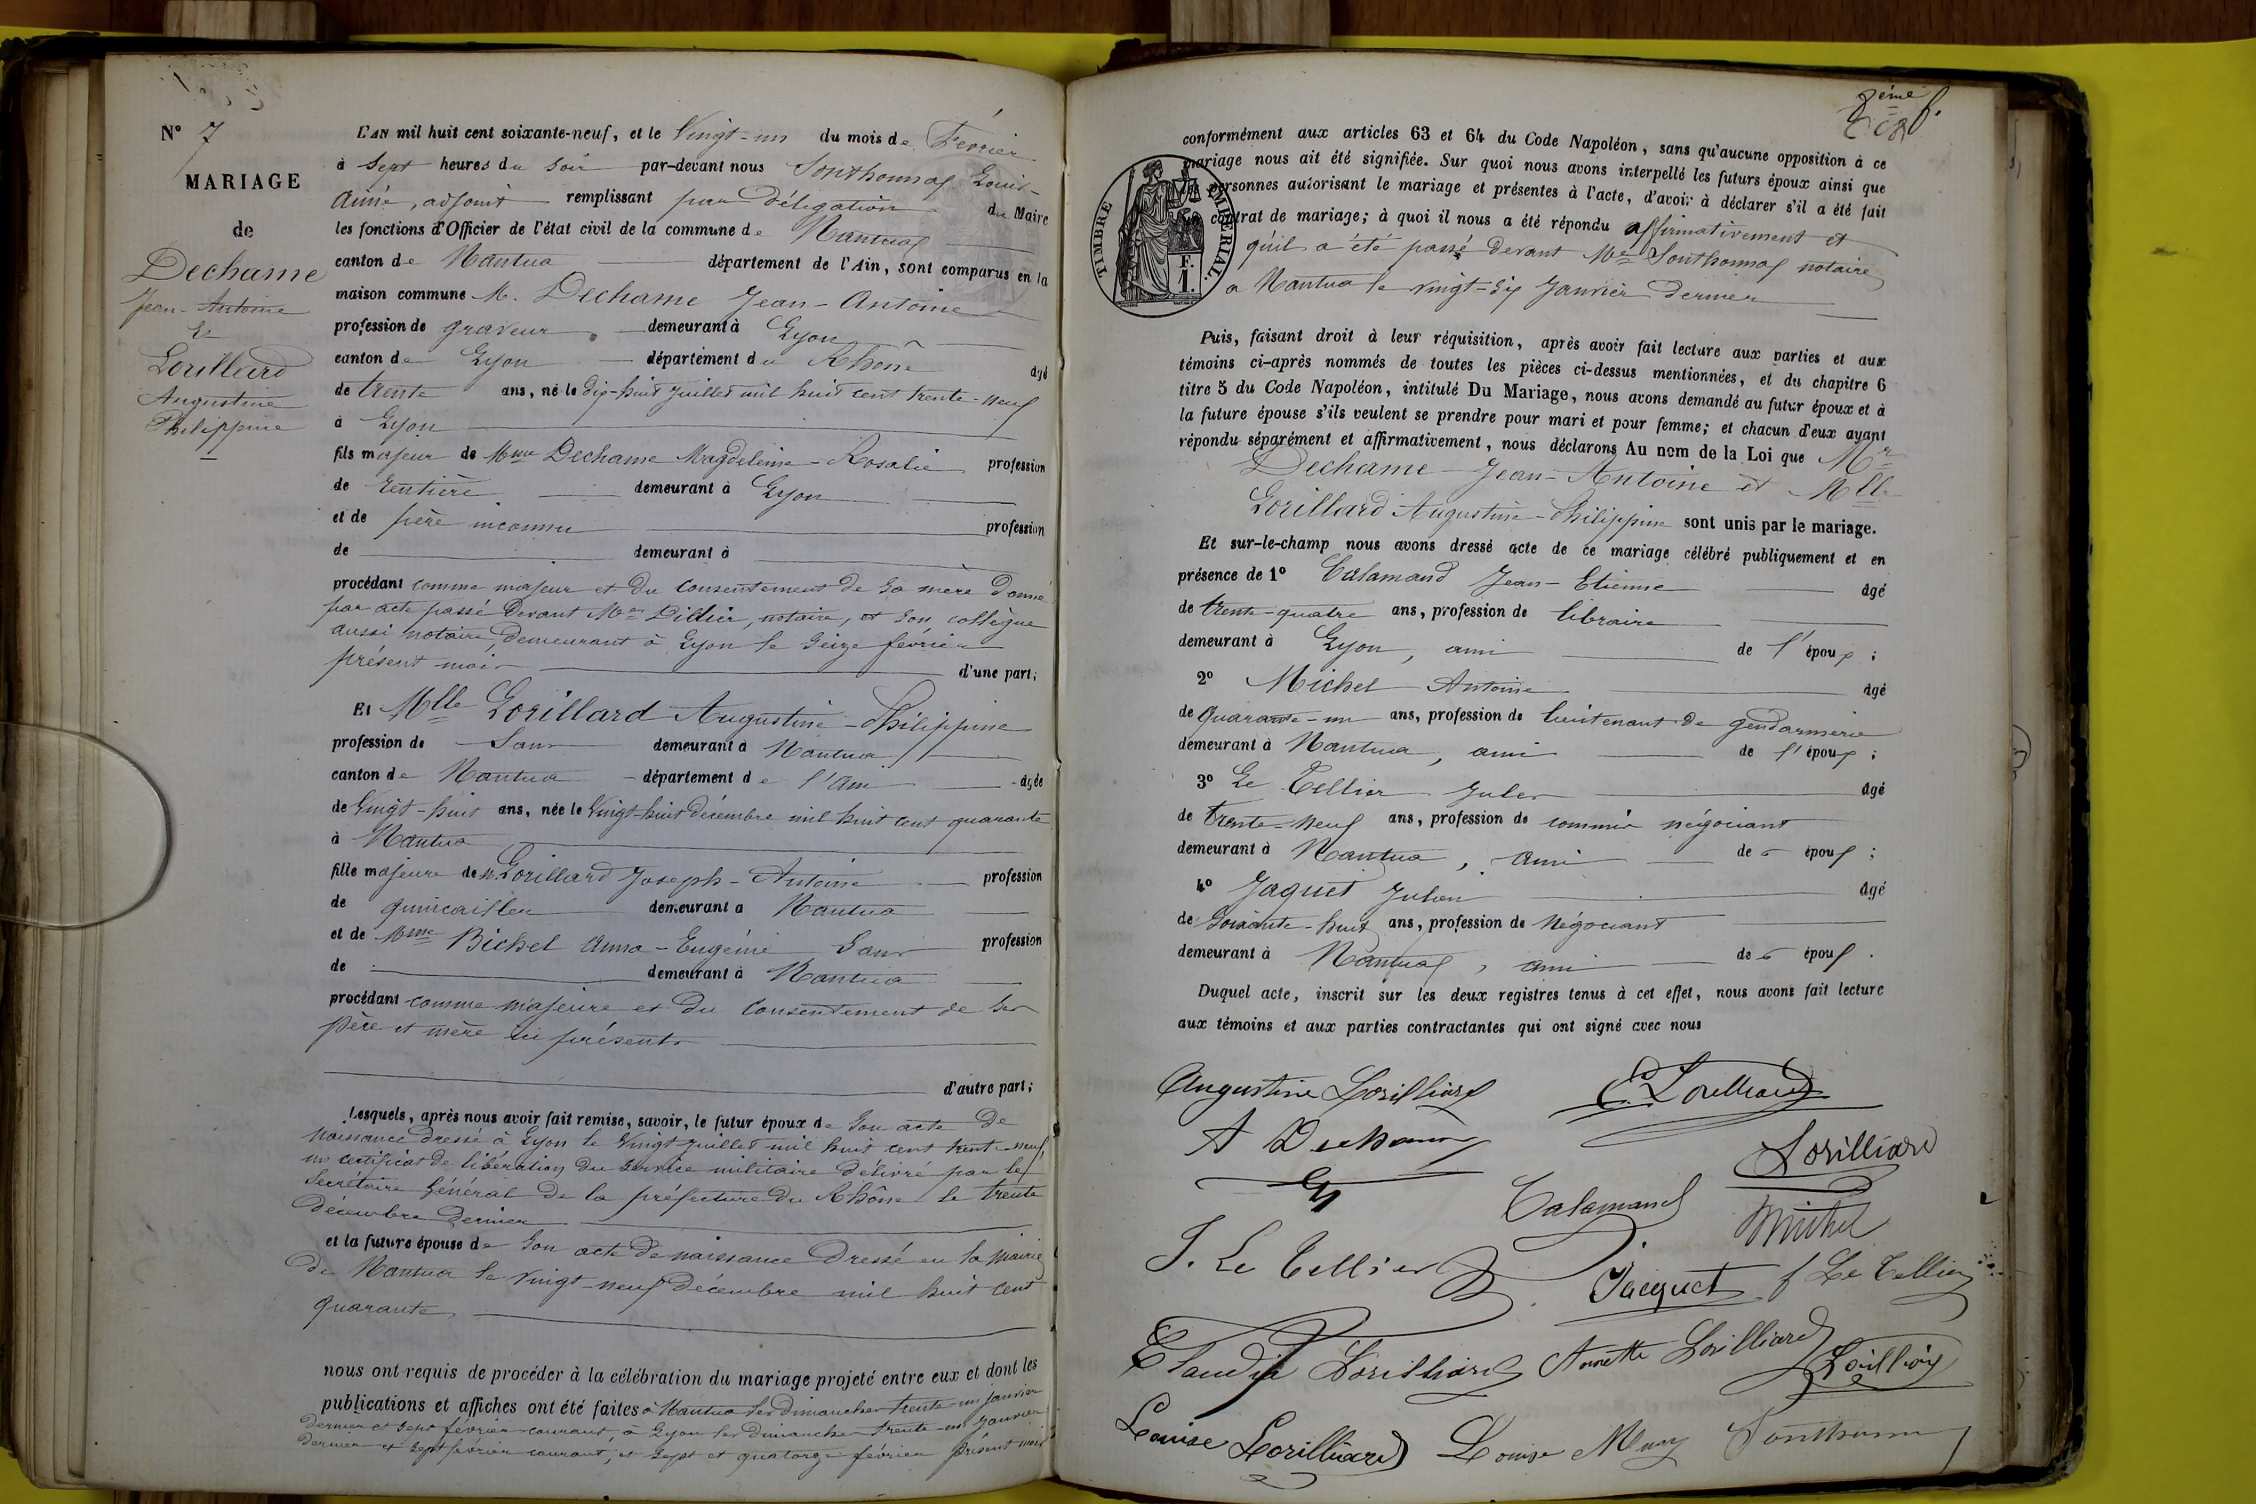 N° 7
MARIAGE
de
Dechame
Jean-Antoine
&
Lorilliard
Augustine
Philippine
L'AN mil huit cent soixante-neuf, et le Vingt-un du mois de Février
à Sept heures du soir par-devant nous Sonthonnax Louis-
Aimé, adjoint remplissant par délégation du Maire
les fonctions d'Officier de l'état civil de la commune de Nantua
canton de Nantua département de l'Ain, sont comparus en la
maison commune M. Dechame Jean-Antoine
profession de graveur demeurant à Lyon
canton de Lyon département du Rhône âgé
de trente ans, né le dix-huit juillet mil huit cent trente-neuf
à Lyon
fils majeur de Mme Dechame Magdeleine-Rosalie profession
de rentière demeurant à Lyon
et de père inconnu profession
de demeurant à
procédant comme majeur et du consentement de sa mère donné
par acte passé devant Me Didier, notaire, et son collègue
aussi notaire, demeurant à Lyon le seize février
présent mois d'une part;
Et Mlle Lorillard Augustine-Philippine
profession de Sans demeurant à Nantua
canton de Nantua département de l'Ain âgée
de Vingt-huit ans, née le Vingt-huit décembre mil huit cent quarante
à Nantua
fille majeure de M. Lorillard Joseph-Antoine profession
de quincailler demeurant à Nantua
et de Mme Bichet Anna-Eugénie Sans profession
de demeurant à Nantua
procédant comme majeure et du consentement de ses
père et mère ici présents
d'autre part;
Lesquels, après nous avoir fait remise, savoir, le futur époux de son acte de
naissance dressé à Lyon le Vingt juillet mil huit cent trente-neuf,
un certificat de libération du service militaire délivré par le
Secrétaire Général de la préfecture du Rhône le trente
décembre dernier
et la future épouse de son acte de naissance dressé en la mairie
de Nantua le vingt-neuf décembre mil huit cent
quarante
nous ont requis de procéder à la célébration du mariage projeté entre eux et dont les
publications et affiches ont été faites à Nantua les dimanches trente-un janvier
dernier et sept février courant, à Lyon les dimanches trente-un janvier
dernier et sept février courant, et sept et quatorze février présent mois
8ème f.
TIMBRE IMPÉRIAL.
F.
1.
conformément aux articles 63 et 64 du Code Napoléon, sans qu'aucune opposition à ce
mariage nous ait été signifiée. Sur quoi nous avons interpellé les futurs époux ainsi que
les personnes autorisant le mariage et présentes à l'acte, d'avoir à déclarer s'il a été fait
contrat de mariage; à quoi il nous a été répondu affirmativement et
qu'il a été passé devant Me Sonthonnax notaire
a Nantua le vingt-six Janvier dernier
Puis, faisant droit à leur réquisition, après avoir fait lecture aux parties et aux
témoins ci-après nommés de toutes les pièces ci-dessus mentionnées, et du chapitre 6
titre 5 du Code Napoléon, intitulé Du Mariage, nous avons demandé au futur époux et à
la future épouse s'ils veulent se prendre pour mari et pour femme; et chacun d'eux ayant
répondu séparément et affirmativement, nous déclarons Au nom de la Loi que Mr
Dechame Jean-Antoine et Mlle
Lorillard Augustine-Philippine sont unis par le mariage.
Et sur-le-champ nous avons dressé acte de ce mariage célébré publiquement et en
présence de 1° Calamand Jean-Etienne âgé
de trente-quatre ans, profession de libraire
demeurant à Lyon, ami de l'époux;
2° Michel Antoine âgé
de quarante-un ans, profession de lieutenant de gendarmerie
demeurant à Nantua, ami de l'époux;
3° Le Tellier Jules âgé
de trente-neuf ans, profession de commis négociant
demeurant à Nantua, ami de épous;
4° Jaquet Julien âgé
de soixante-huit ans, profession de Négociant
demeurant à Nantua, ami de épous.
Duquel acte, inscrit sur les deux registres tenus à cet effet, nous avons fait lecture
aux témoins et aux parties contractantes qui ont signé avec nous
Augustine Lorilliard
E. Lorilliard
A Dechame
Lorilliard
Calamand
Michel
J. Le Tellier
Jacquet
f Le Tellier
Claudia Lorilliard
Annette Lorilliard
Lorilliard
Louise Lorilliard
Louise
Sonthonnax